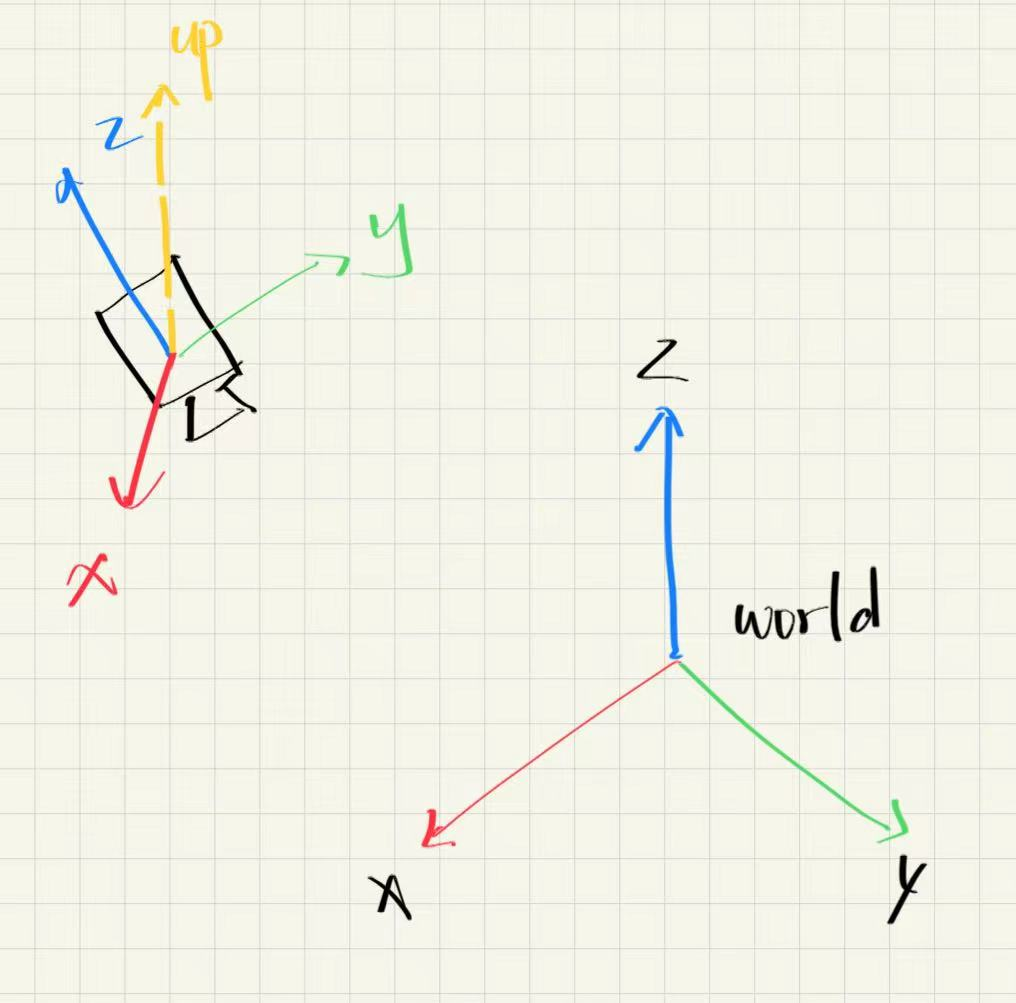 up
z
y
x
z
world
x
y